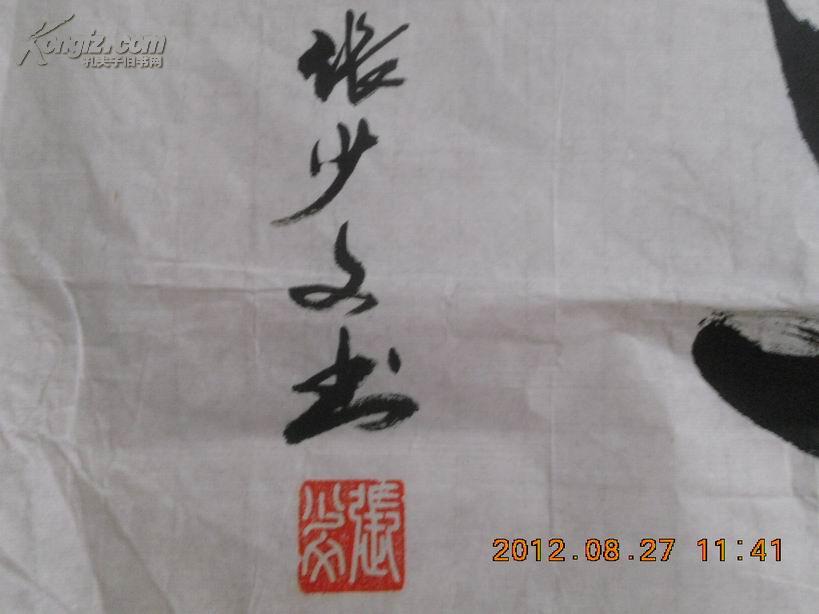 Kongfz.com
孔夫子旧书网
张少文书
張少文
2012.08.27 11:41